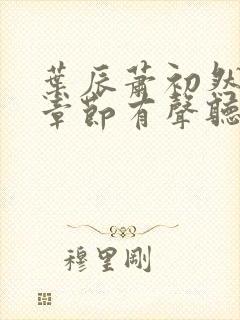 葉辰蕭初然
章節有聲聽
穆里剛